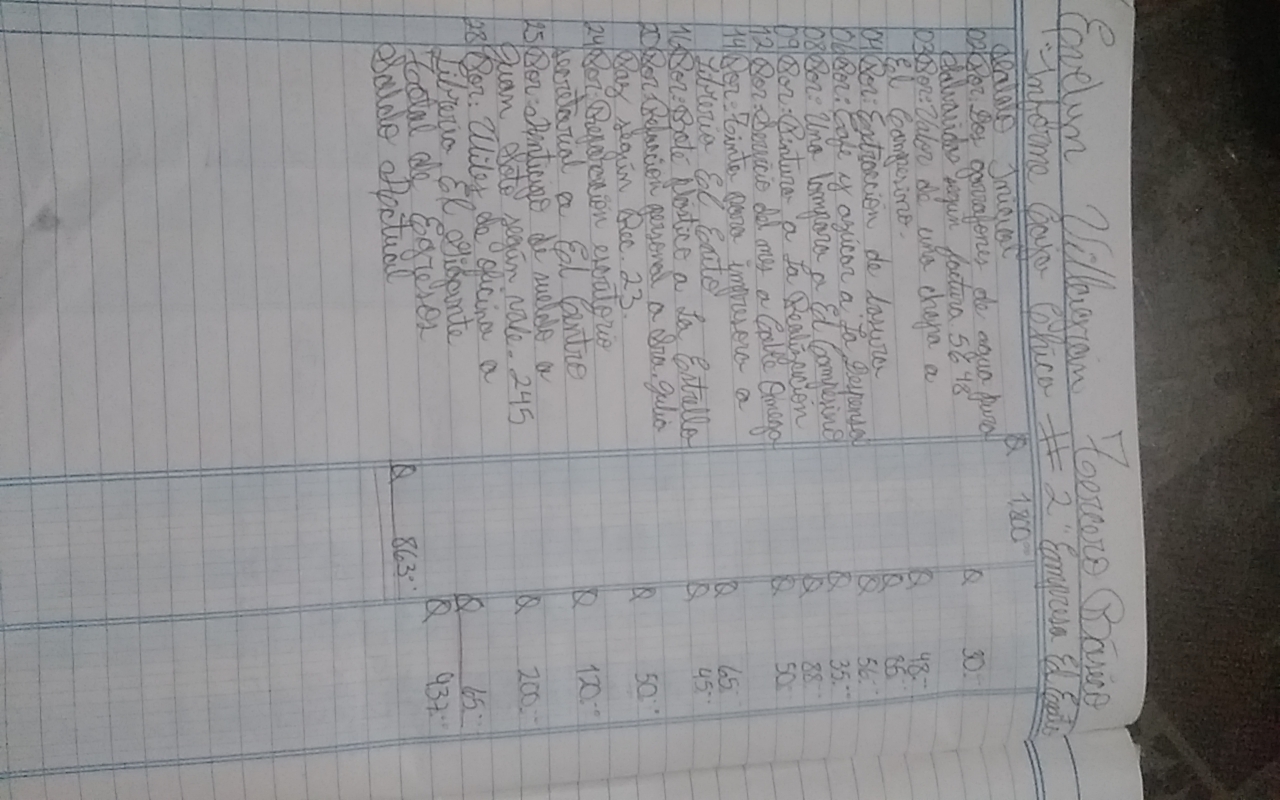 Evelyn Villagrán Tercero Básico
1- Informe Caja Chica # 2 "Empresa El Éxito
Saldo Inicial Q 1,800.--
02 Por: Dos garrafones de agua pura
Salvavidas según factura 5648 Q 30.--
03 Por: Valor de una chapa a
El Campesino. Q 48.--
04 Por: Extracción de basura Q
06 Por: Café y azúcar a La Despensa Q 56.--
08 Por: Una lámpara a El Campesino Q 35.--
09 Por: Pintura a La Realización Q 88.--
12 Por: Servicio del mes a Cable Omega Q 50.--
14 Por: Tinta para impresora a
Librería El Éxito Q 65.--
16 Por: Bote Plástico a La Estrella Q 45.--
20 Por: Refacción personal a Sra. Julia
Paz según Rec. 23 Q 50.--
24 Por: Reparación escritorio
secretarial a El Cantro Q 120.--
25 Por: Anticipo de sueldo a
Juan Soto según vale. 245 Q 200.--
28 Por: Utiles de oficina a
Librería El Gigante Q 65.--
Total de Egresos Q 937.--
Saldo Actual Q 863.--